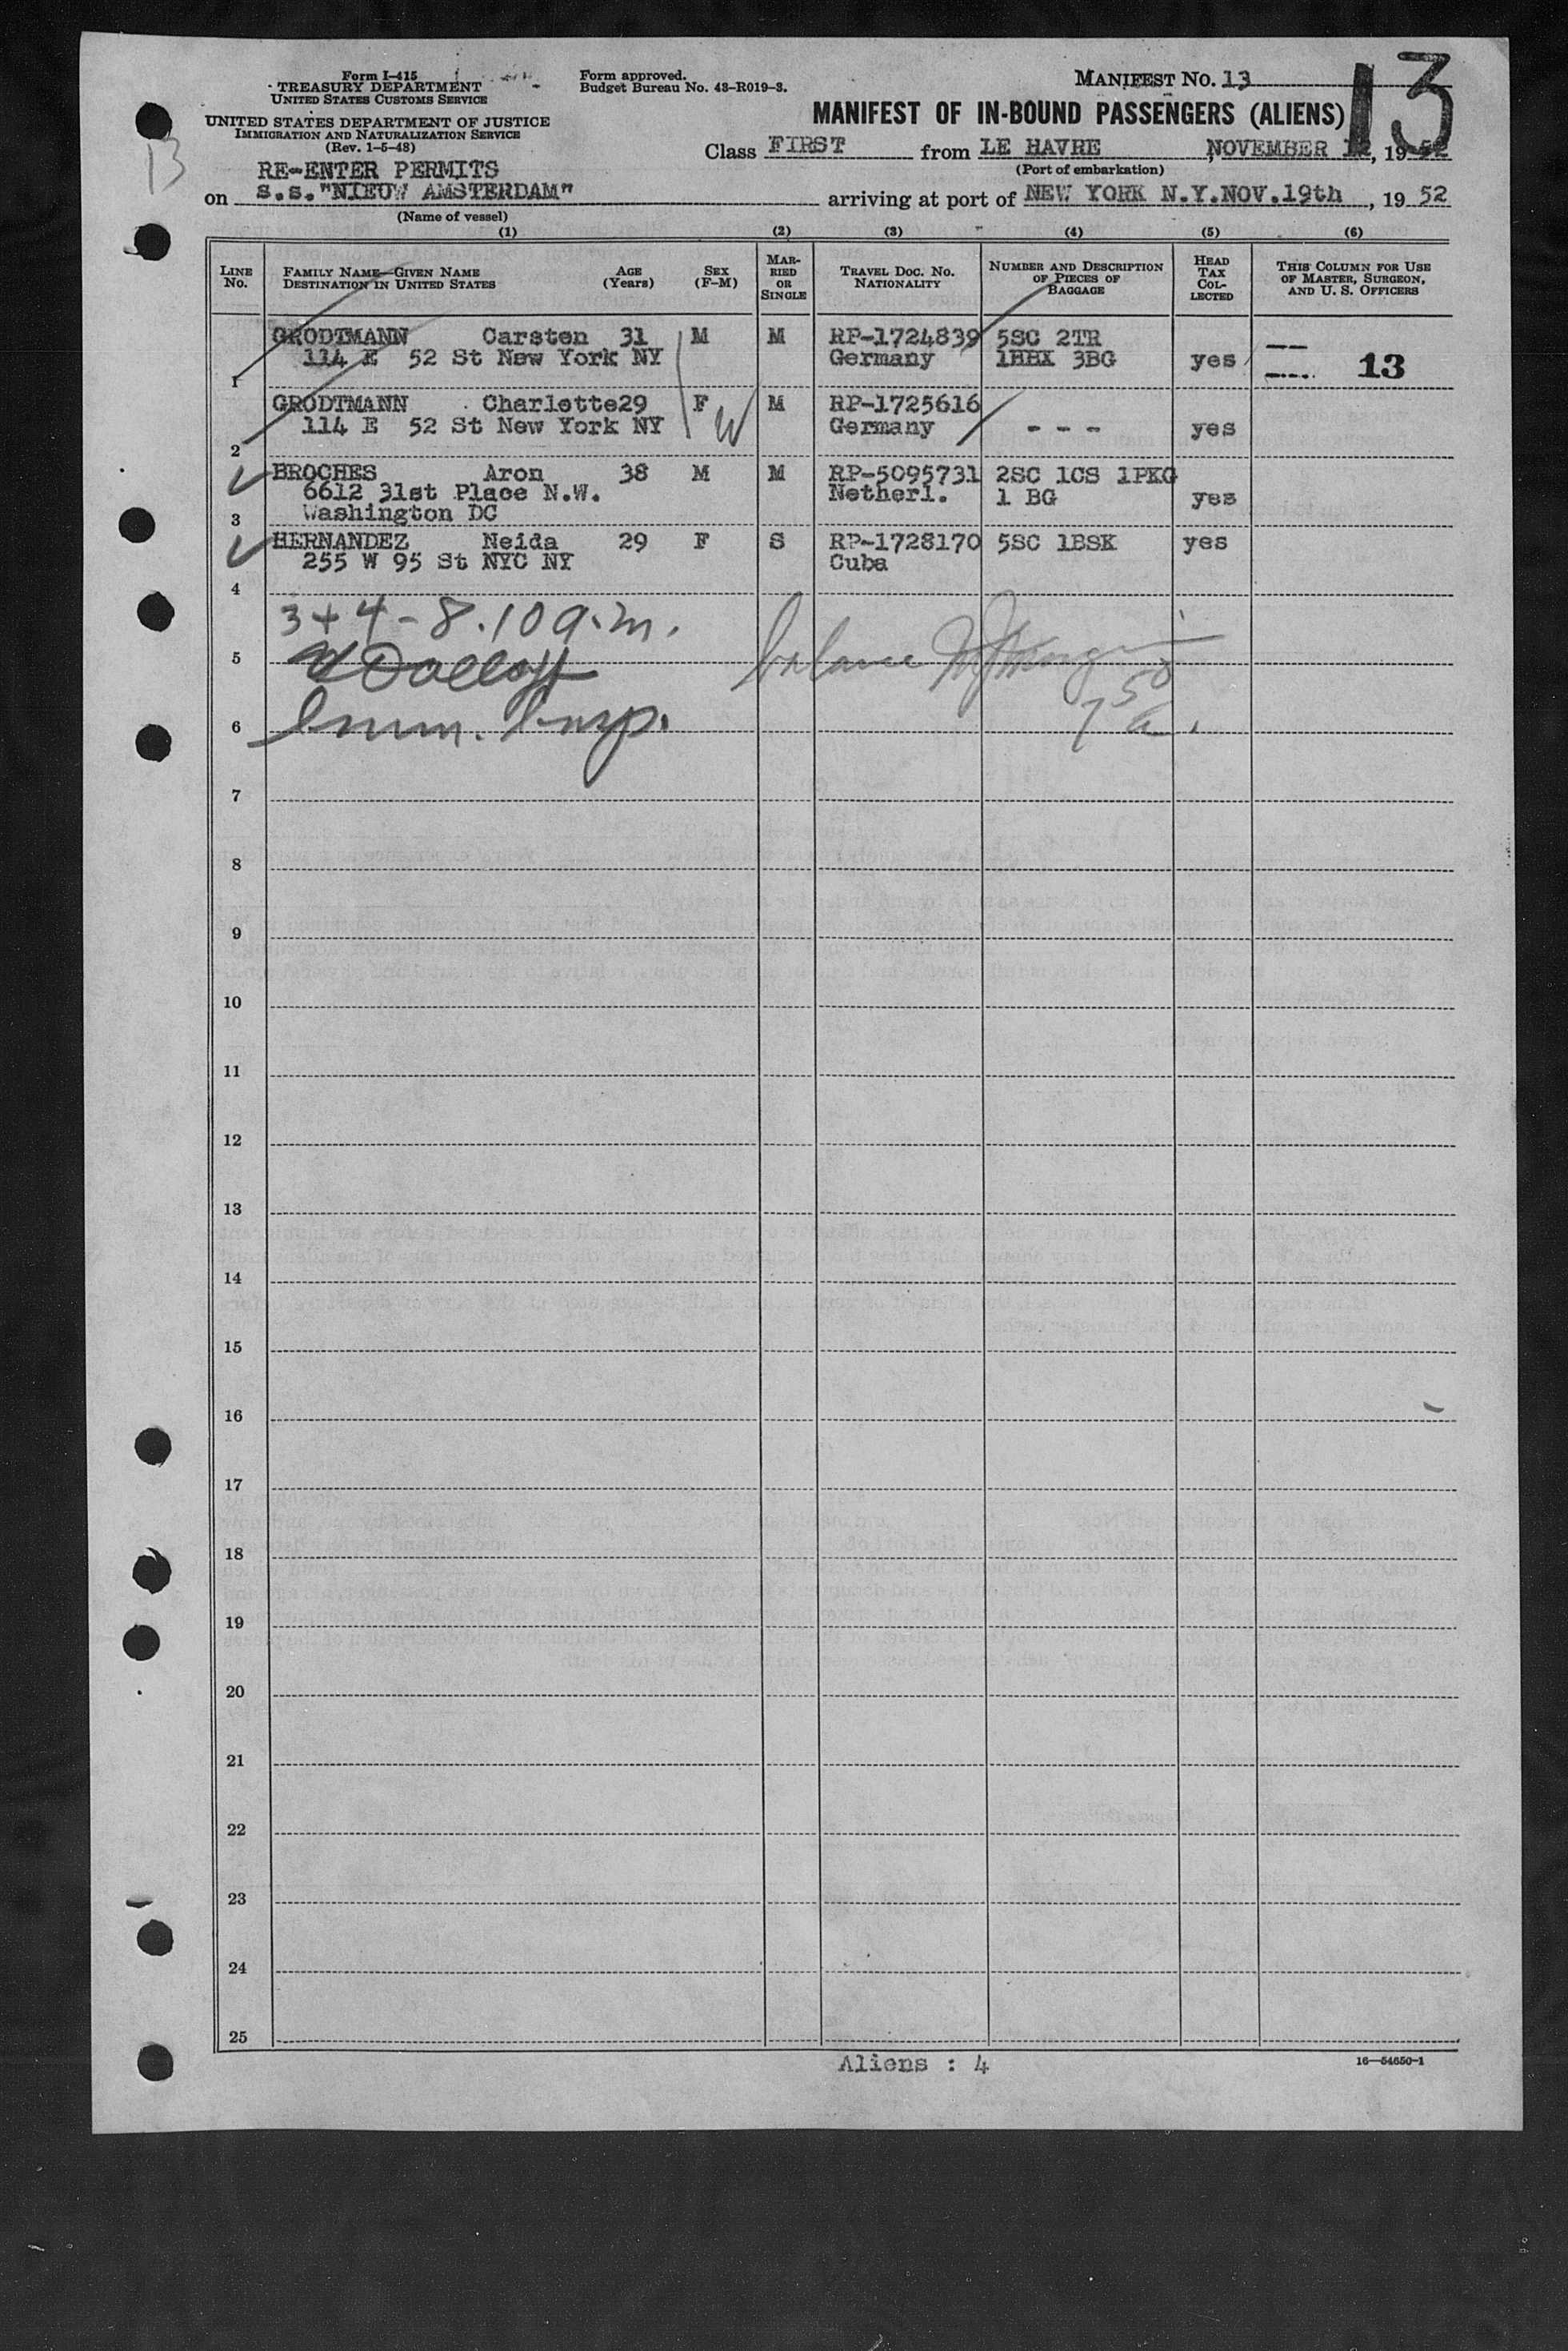 Form I-415
TREASURY DEPARTMENT
UNITED STATES CUSTOMS SERVICE
UNITED STATES DEPARTMENT OF JUSTICE
IMMIGRATION AND NATURALIZATION SERVICE
(Rev. 1-5-48)
Form approved.
Budget Bureau No. 43-R019-3.
MANIFEST NO. 13
13
MANIFEST OF IN-BOUND PASSENGERS (ALIENS)
13
Class FIRST from LE HAVRE, NOVEMBER 12, 1952
(Port of embarkation)
RE-ENTER PERMITS
on S.S."NIEUW AMSTERDAM" arriving at port of NEW YORK N.Y.NOV.19th, 1952
(Name of vessel)
(1) (2) (3) (4) (5) (6)
LINE No. FAMILY NAME—GIVEN NAME DESTINATION IN UNITED STATES AGE (Years) SEX (F-M) MARRIED OR SINGLE TRAVEL DOC. NO. NATIONALITY NUMBER AND DESCRIPTION OF PIECES OF BAGGAGE HEAD TAX COLLECTED THIS COLUMN FOR USE OF MASTER, SURGEON, AND U. S. OFFICERS
GRODTMANN Carsten 31 M M RP-1724839 5SC 2TR
114 E 52 St New York NY Germany 1HBX 3BG yes 13
1
GRODTMANN Charlotte29 F W M RP-1725616
114 E 52 St New York NY Germany - - - yes
2
BROCHES Aron 38 M M RP-5095731 2SC 1CS 1PKG
6612 31st Place N.W. Netherl. 1 BG yes
3 Washington DC
HERNANDEZ Neida 29 F S RP-1728170 5SC 1BSK yes
255 W 95 St NYC NY Cuba
4
3+4-8.10 a.m.
balance
5
750
6 Imm. Insp. a.
7
8
9
10
11
12
13
14
15
16
17
18
19
20
21
22
23
24
25
Aliens : 4
16—54650-1